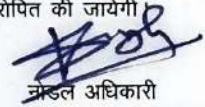 रोपित की जायेगी।
नोडल अधिकारी